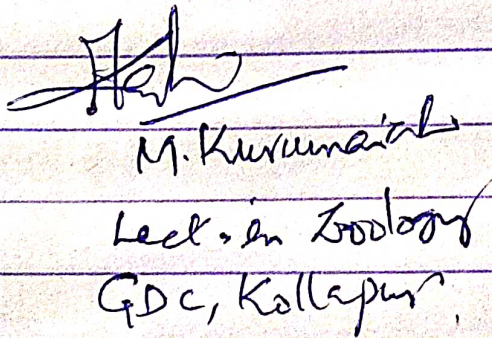 M. Kurumaiah
Lect. in Zoology
GDC, Kollapur.